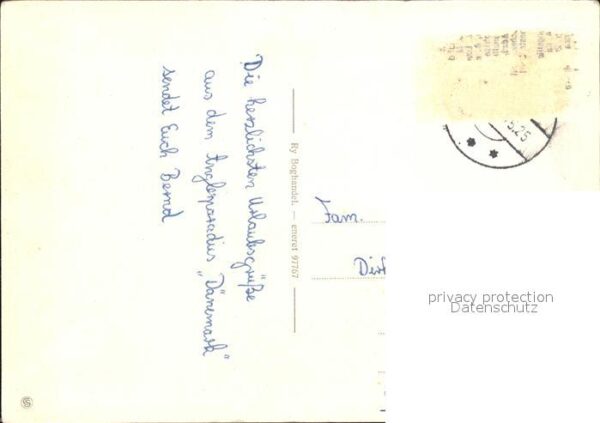 Die herzlichsten Urlaubsgrüße
aus dem Anglerparadies „Dänemark“
sendet Euch Bernd
Ry Boghandel. — eneret 97767
Fam.
privacy protection
Datenschutz